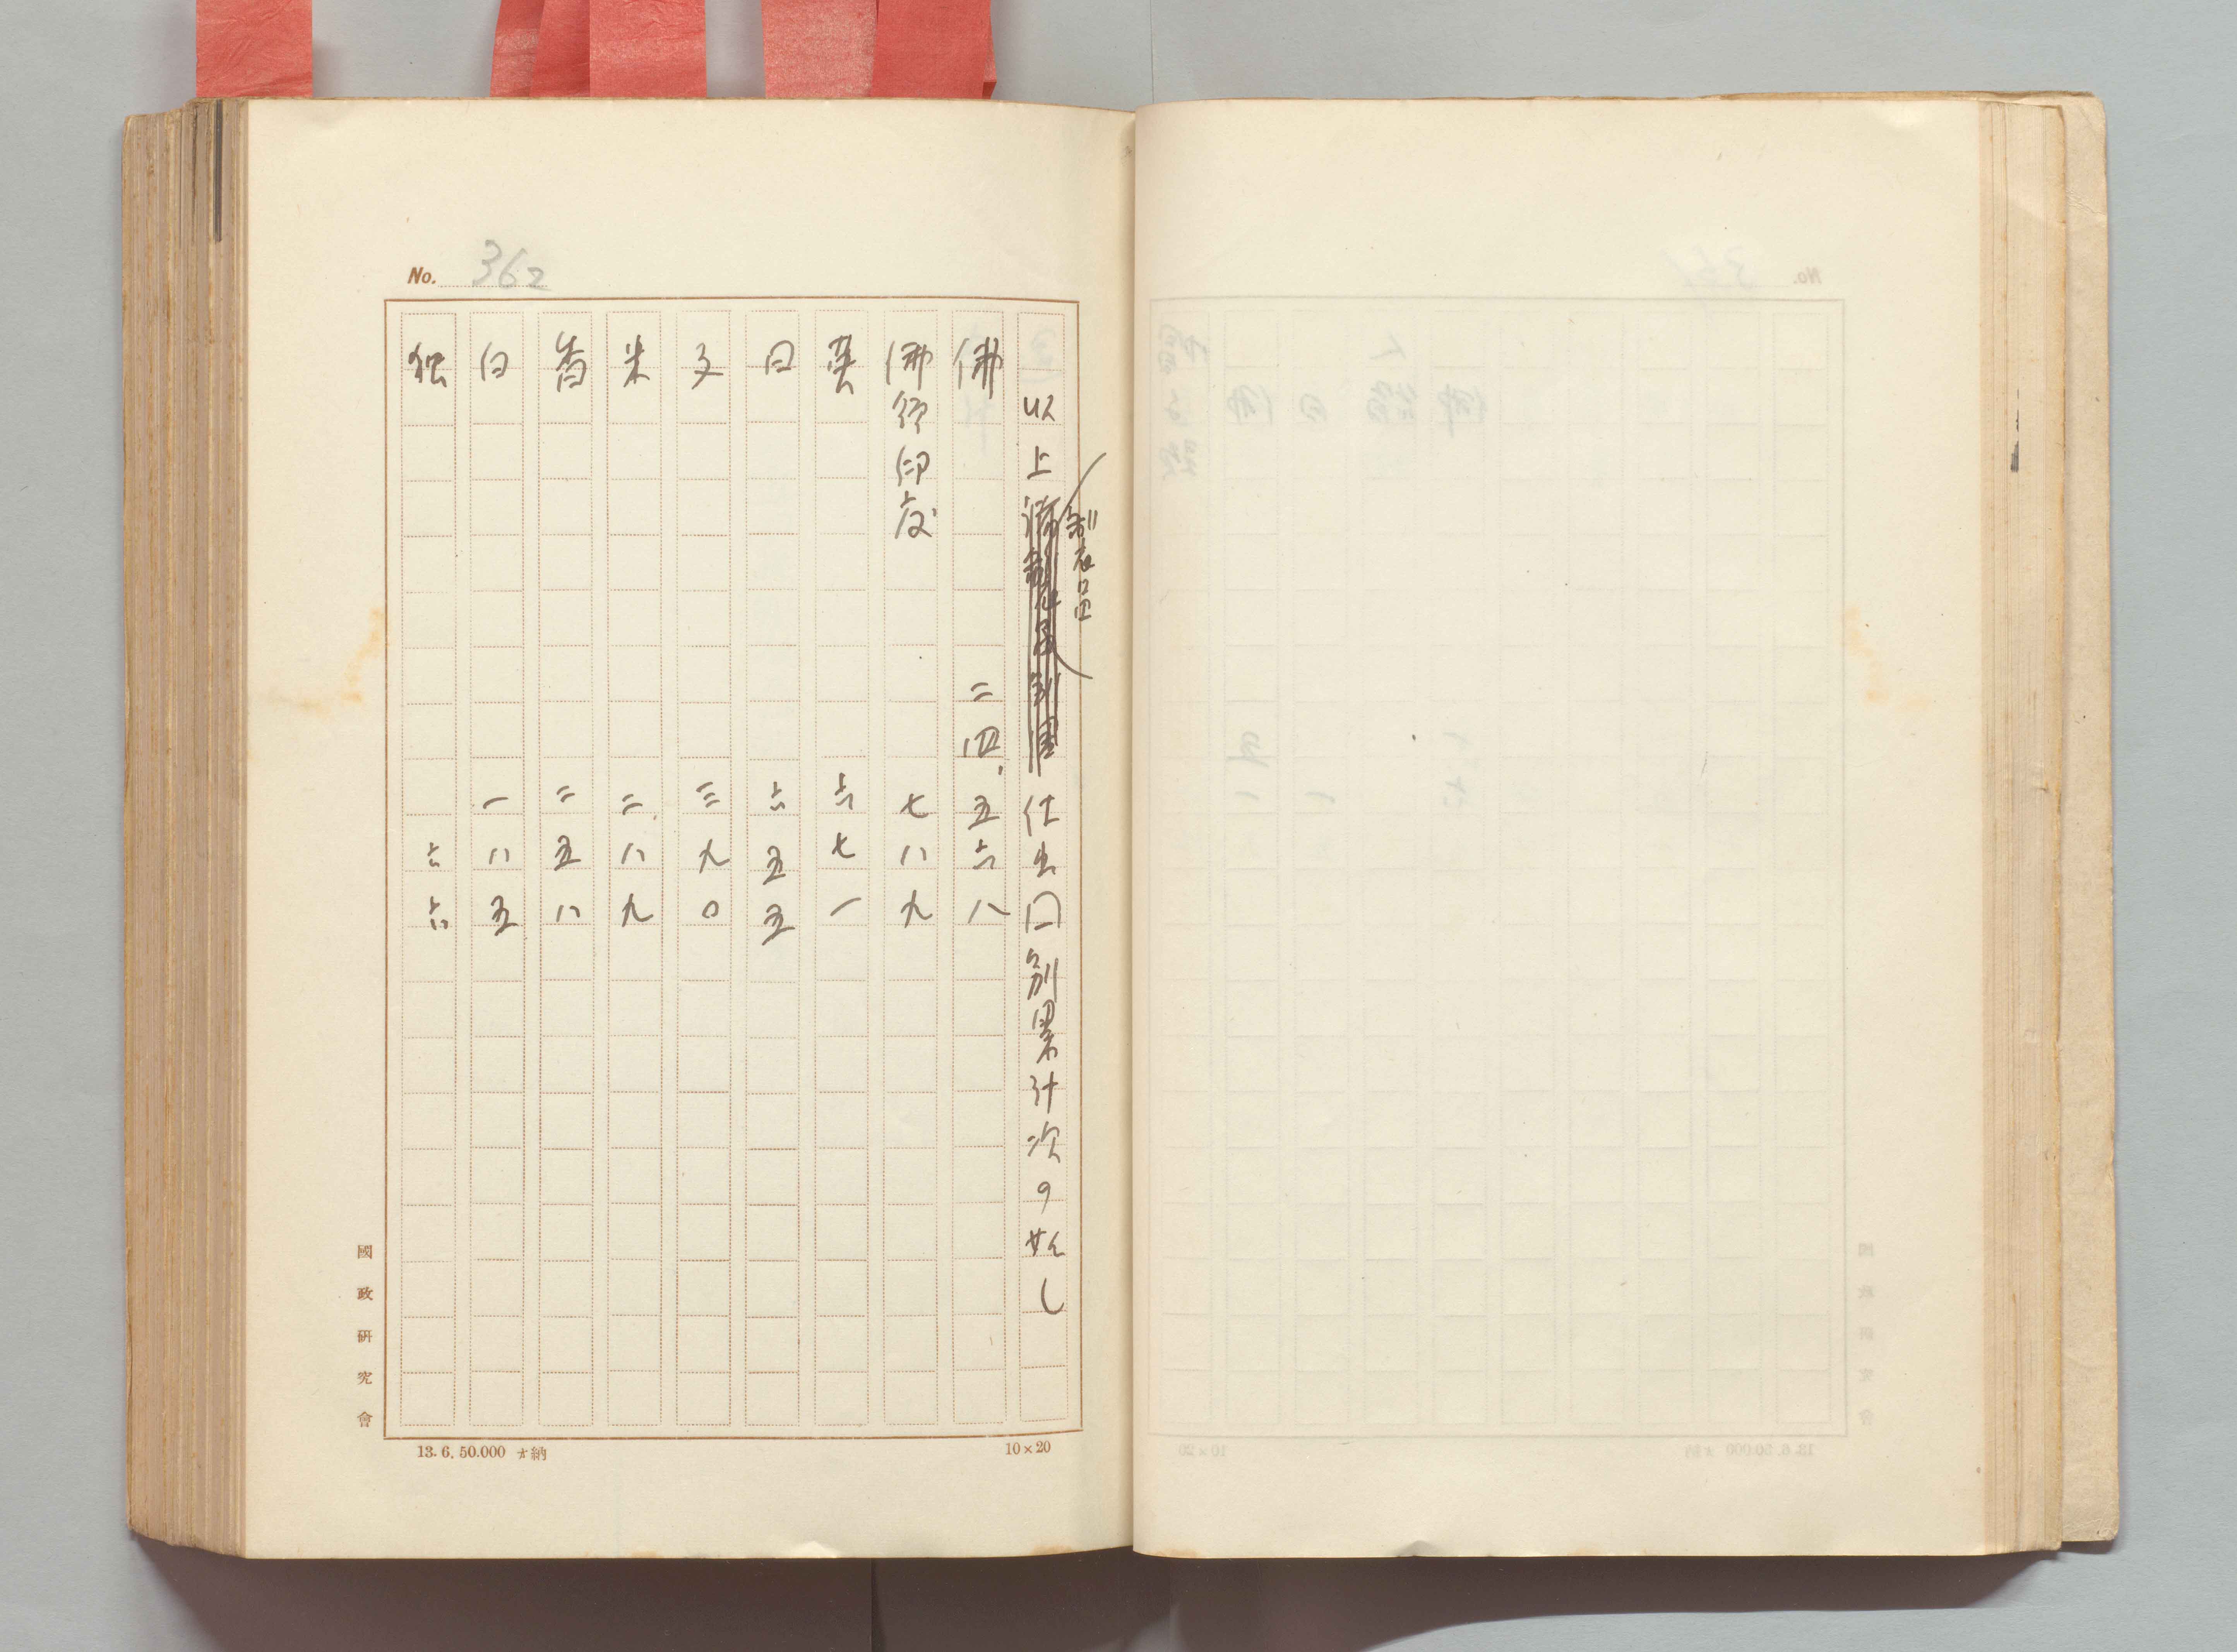 No. 362
以上製表品仕出口別累計次の如し
佛 二四五六八
佛領印度 七八九
英 六七一
日 六五五
支 三九〇
米 二八九
香 二五八
白 一八五
独 六六
國政研究會
13. 6. 50.000 納
10×20